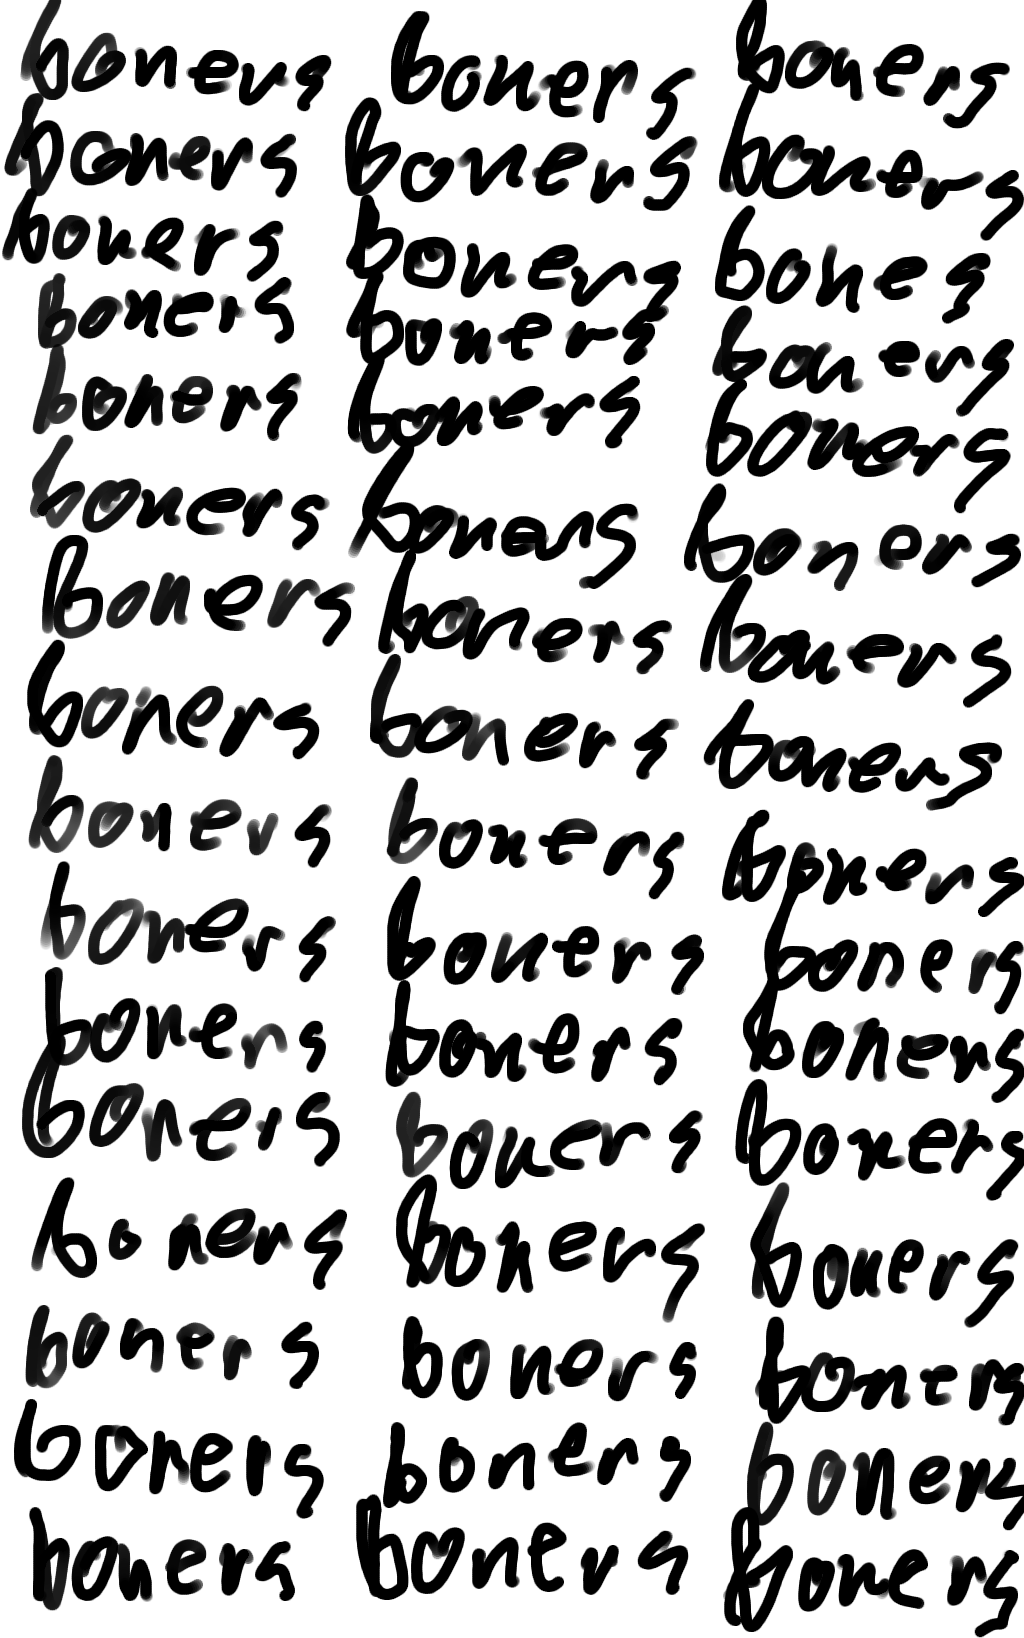 boners boners boners
boners boners boners
boners boners bones
boners boners boners
boners boners boners
boners boners boners
boners boners boners
boners boners boners
boners boners boners
boners boners boners
boners boners boners
boners boners boners
boners boners boners
boners boners boners
boners boners boners
boners boners boners